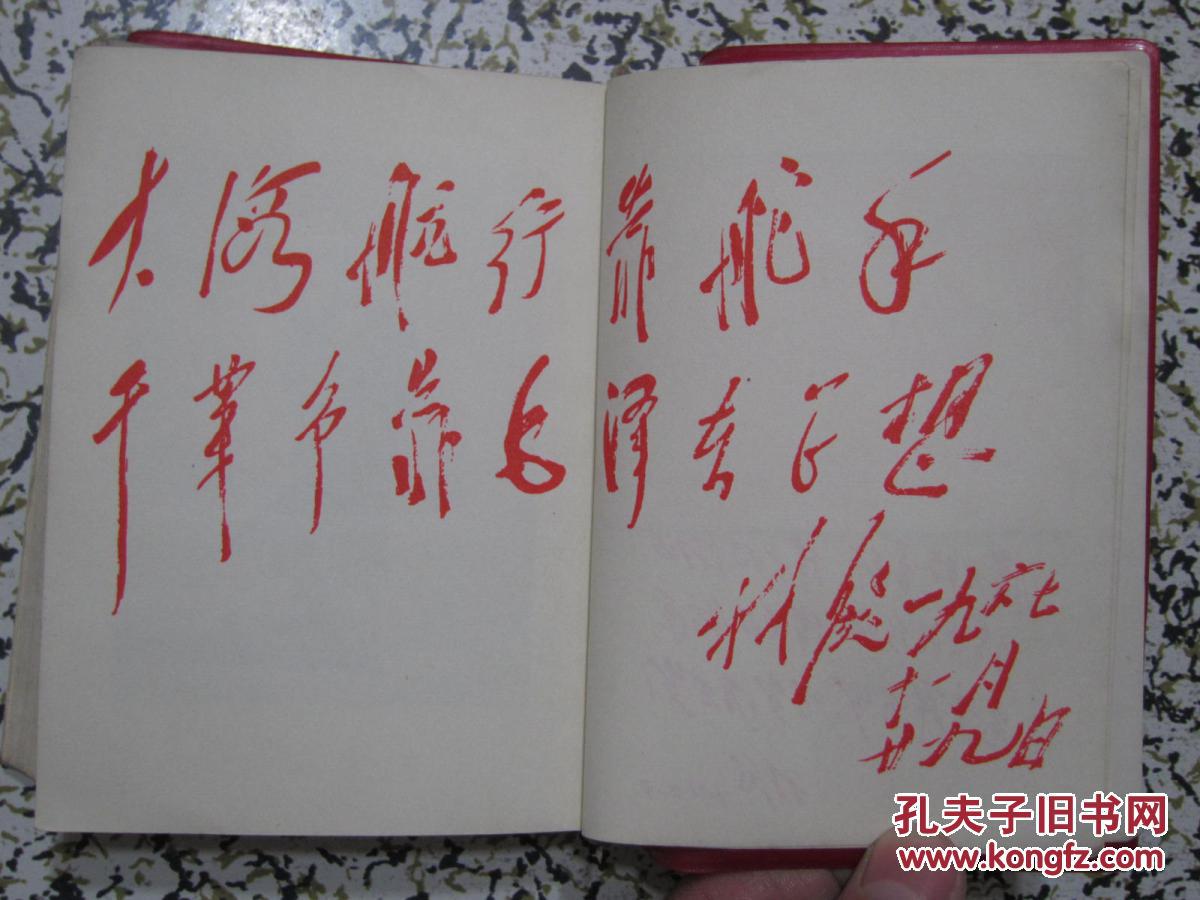 大海航行靠舵手
干革命靠毛泽东思想
林彪 一九六七
十一月
廿九日
孔夫子旧书网
www.kongfz.com